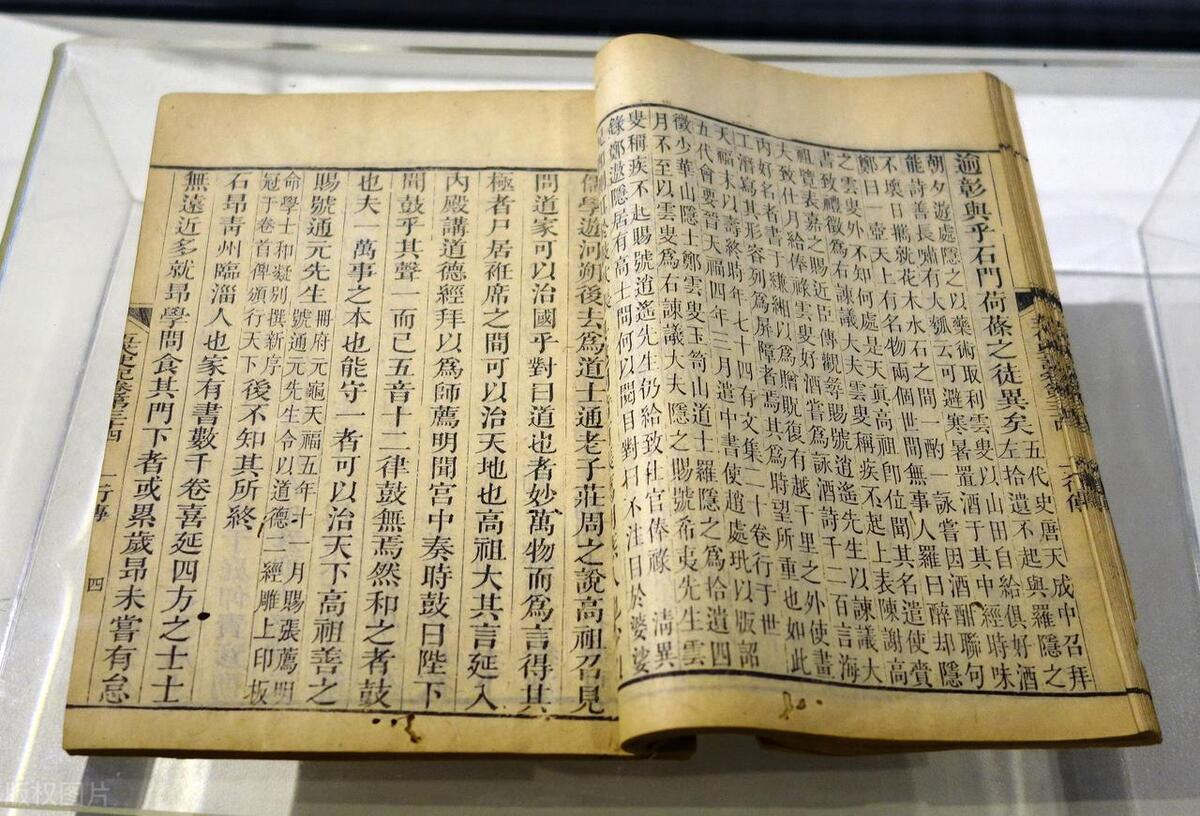 逾彰與乎石門荷蓧之徒異矣
五代史唐天成中召拜
左拾遺不起與羅隱之
朝夕遊處隱之以藥術取利雲叟以山田自給俱好酒
能詩善長嘯有大瓠云可避寒暑置酒于其中經時味
不壞日攜就花木水石之間一酌一詠嘗因酒酣聯句
鄭曰一壺天上有名物兩個世間無事人羅曰醉却隱
之雲叟外不知何處是天真高祖卽位聞其名遣使賫
書致禮徵爲右諫議大夫雲叟稱疾不起上表陳謝高
祖覽表嘉之賜近臣傳觀尋賜號逍遙先生以諫議大
夫致仕月給俸祿雲叟好酒嘗爲詠酒詩千二百言海
內好名者書于縑緗以爲贈貺復有越千里之外使畫
工潛寫其形容列爲屏障者焉其爲時望所重也如此
天福末以壽終時年七十四有文集二十卷行于世
五代會要晉天福四年二月遣中書使趙處玭以版詔
徵少華山隱士鄭雲叟玉笥山道士羅隱之爲拾遺四
月不至以雲叟爲右諫議大夫隱之賜號希夷先生雲
叟稱疾不起賜號逍遙先生仍給致仕官俸祿 清異
錄鄭遨隱居有高士問何以閱目對曰不注目於婆娑
儒學遊河朔後去爲道士通老子莊周之說高祖召見
問道家可以治國乎對曰道也者妙萬物而爲言得其
極者尸居袵席之間可以治天地也高祖大其言延入
內殿講道德經拜以爲師薦明聞宮中奏時鼓曰陛下
聞鼓乎其聲一而已五音十二律鼓無焉然和之者鼓
也夫一萬事之本也能守一者可以治天下高祖善之
賜號通元先生
冊府元龜天福五年十一月賜張薦明
號通元先生令以道德二經雕上印板
命學士和凝別撰新序
冠于卷首俾頒行天下
後不知其所終
石昂青州臨淄人也家有書數千卷喜延四方之士士
無遠近多就昂學問食其門下者或累歲昂未嘗有怠
四
版权图片